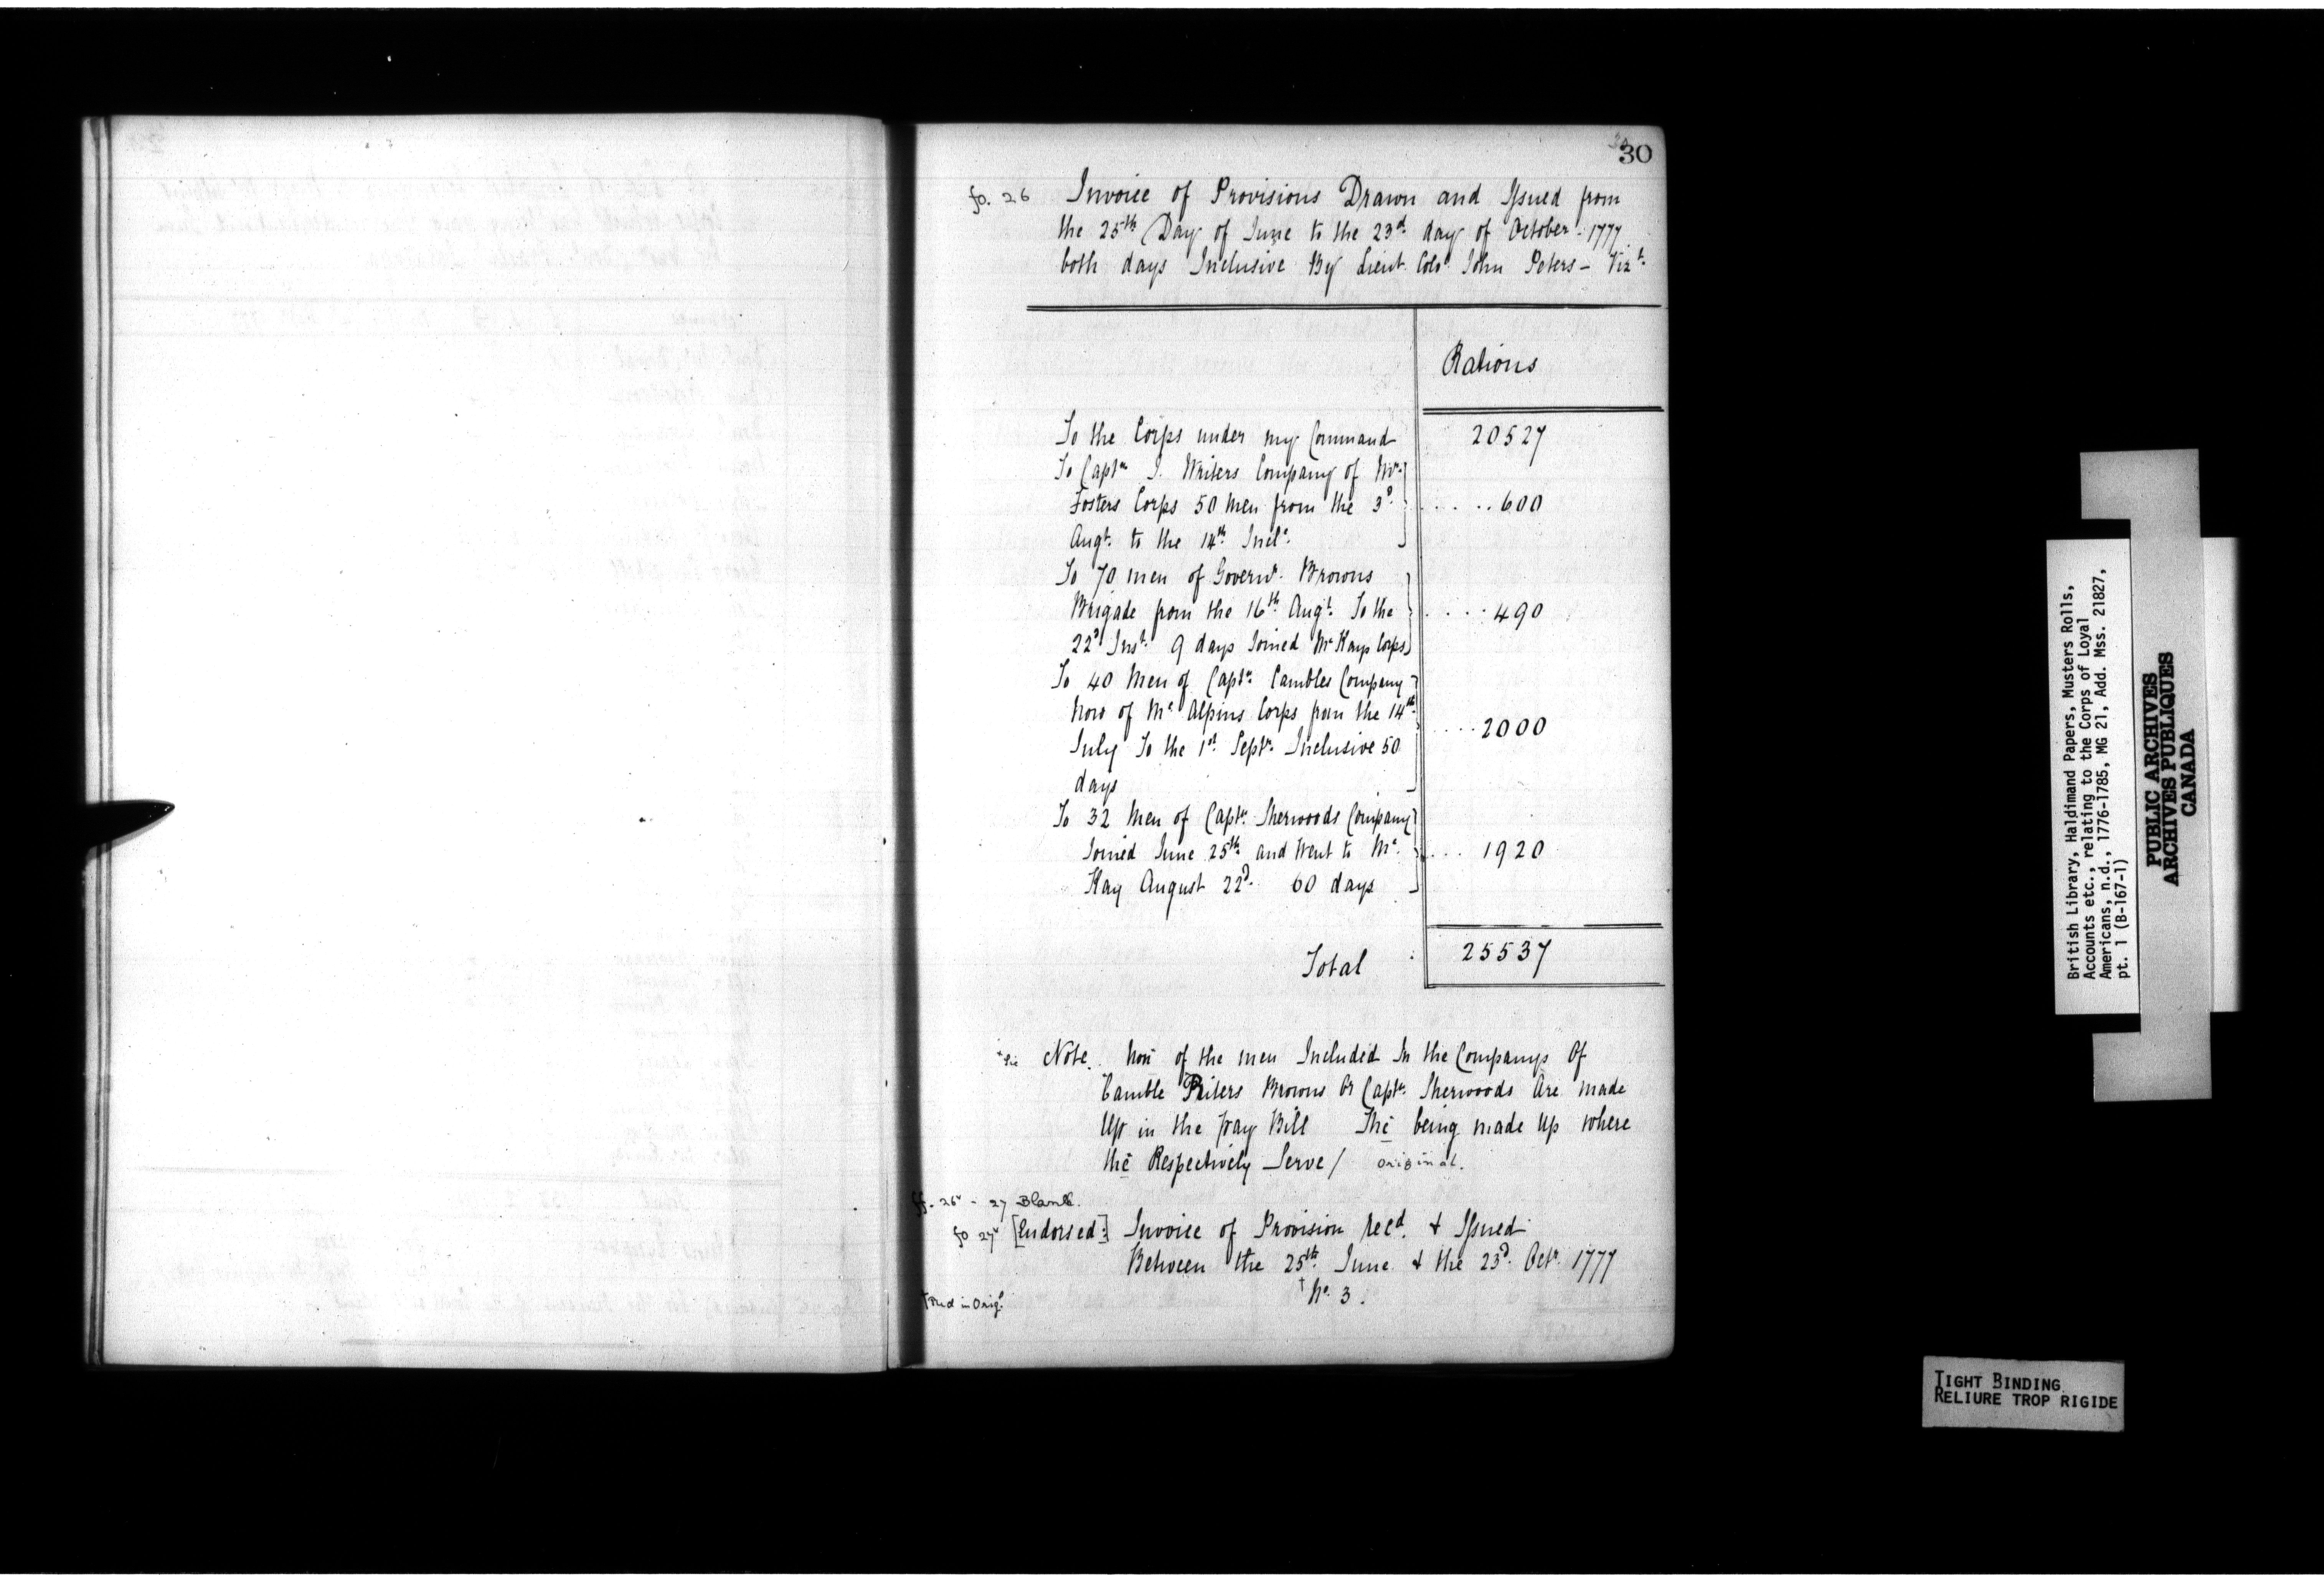 30
fo. 26 Invoice of Provisions Drawn and Issued from
the 25th Day of June to the 23d day of October 1777
both days Inclusive By Lieut. Colol. John Peters – Vizt.
Rations
To the Corps under my Command 20527
To Captn. J. Writers Company of Mr.
Fosters Corps 50 Men from the 3d. 600
Augt. to the 14thIncle.
To 70 men of Governr. Browns
Brigade from the 16th Augt. To the 490
22d Inst. 9 days Joined McKays Corps
To 40 Men of Captn. Cambles Company
Now of Mc Alpins Corps from the 14th 2000
July To the 1st Septr. Inclusive 50
days
To 32 Men of Captn. Sherwoods Company
Joined June 25th and Went to Mc. 1920
Kay August 22d. 60 days
Total 25537
+ Sic Note. Non of the men Included In the Companys Of
Camble Riters Browns Or Captn. Sherwoods Are made
Up in the pay Bill The being made Up where
the Respectively Serve / original.
ff. 26v - 27 Blank.
fo 27v [Endorsed:] Invoice of Provision Recd. & Issued
Between the 25th June & the 23d. Octr. 1777
† No. 3.
† Red in Origl.
British Library, Haldimand Papers, Musters Rolls,
Accounts etc., relating to the Corps of Loyal
Americans, n.d., 1776-1785, MG 21, Add. Mss. 21827,
pt. 1 (B-167-1)
PUBLIC ARCHIVES
ARCHIVES PUBLIQUES
CANADA
TIGHT BINDING
RELIURE TROP RIGIDE